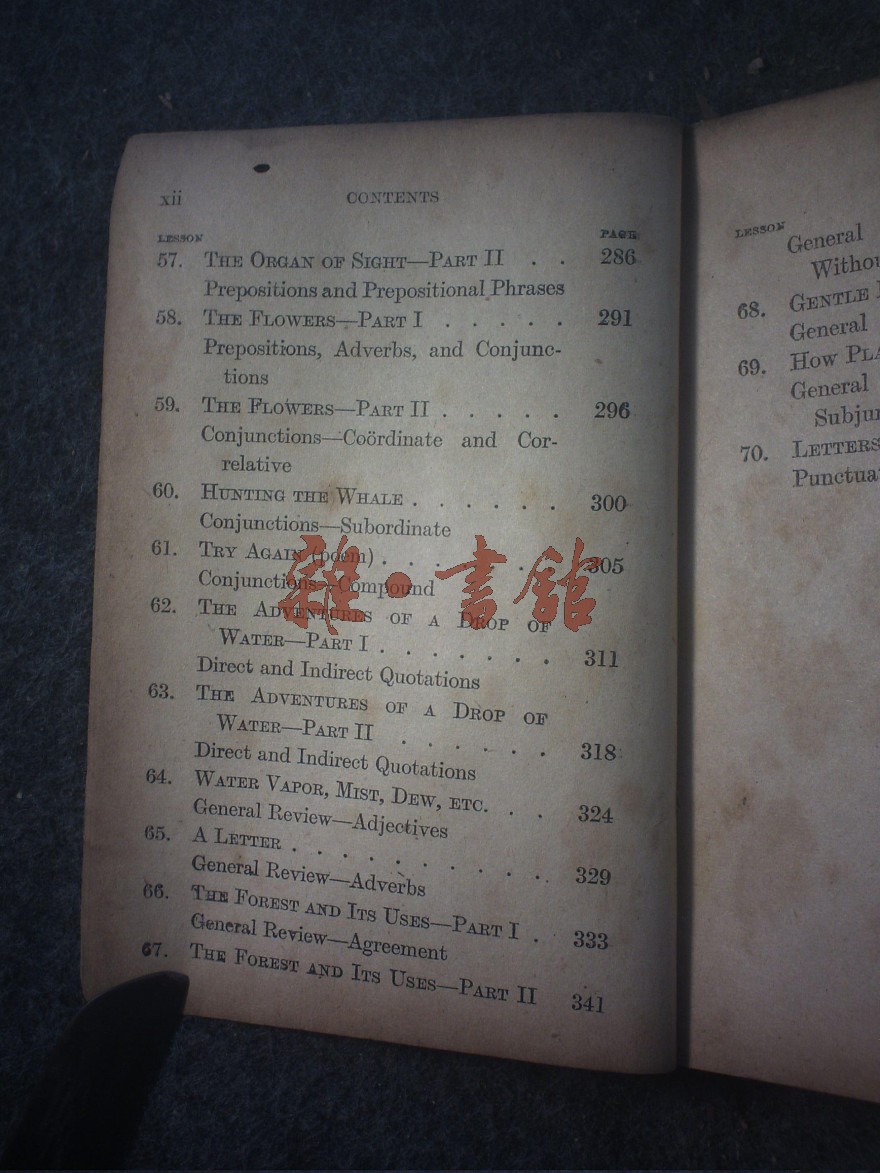 xii CONTENTS
LESSON PAGE
57. THE ORGAN OF SIGHT—PART II . . 286
Prepositions and Prepositional Phrases
58. THE FLOWERS—PART I . . . . . 291
Prepositions, Adverbs, and Conjunc-
tions
59. THE FLOWERS—PART II . . . . . 296
Conjunctions—Coördinate and Cor-
relative
60. HUNTING THE WHALE . . . . . . 300
Conjunctions—Subordinate
61. TRY AGAIN (poem) . . . . . . 305
Conjunctions—Compound
62. THE ADVENTURES OF A DROP OF
WATER—PART I . . . . . . . 311
Direct and Indirect Quotations
63. THE ADVENTURES OF A DROP OF
WATER—PART II . . . . . . 318
Direct and Indirect Quotations
64. WATER VAPOR, MIST, DEW, ETC. . . . 324
General Review—Adjectives
65. A LETTER . . . . . . . . . . 329
General Review—Adverbs
66. THE FOREST AND ITS USES—PART I . 333
General Review—Agreement
67. THE FOREST AND ITS USES—PART II 341
雜·書館
LESSON
General
Withou
68. GENTLE
General
69. HOW PLA
General
Subjun
70. LETTERS
Punctua